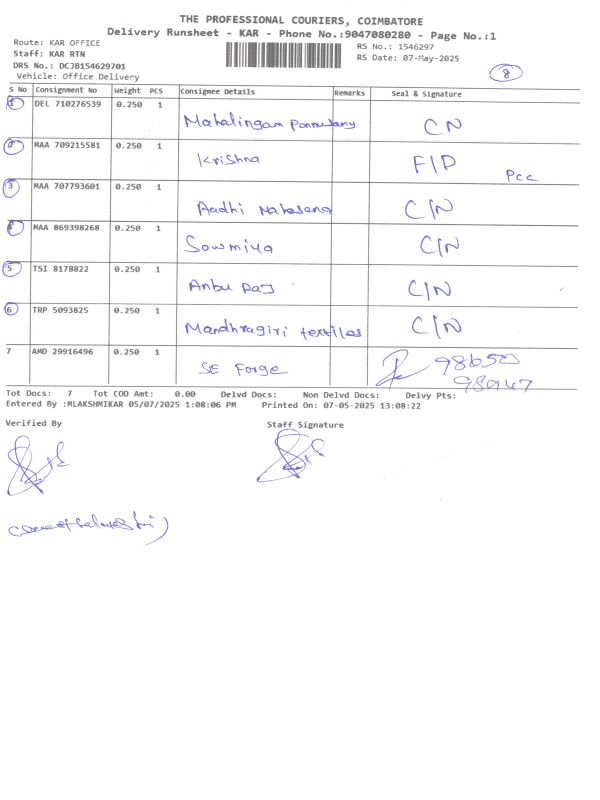 THE PROFESSIONAL COURIERS, COIMBATORE
Delivery Runsheet - KAR - Phone No.:9047080280 - Page No.:1
Route: KAR OFFICE
Staff: KAR RTN
DRS No.: DCJB154629701
Vehicle: Office Delivery
RS No.: 1546297
RS Date: 07-May-2025
8
S No Consignment No Weight PCS Consignee Details Remarks Seal & Signature
1 DEL 710276539 0.250 1
Mahalingam Ponnusamy C N
2 MAA 709215581 0.250 1
Krishna F/D Pcc
3 MAA 707793601 0.250 1
Aadhi Natesana C/N
4 MAA 869398268 0.250 1
Sowmiya C/N
5 TSI 8178822 0.250 1
Anbu Raj C/N
6 TRP 5093825 0.250 1
Mandhragiri textiles C/N
7 AMD 29916496 0.250 1
SE Forge 98650
980147
Tot Docs: 7 Tot COD Amt: 0.00 Delvd Docs: Non Delvd Docs: Delvy Pts:
Entered By :MLAKSHMIKAR 05/07/2025 1:08:06 PM Printed On: 07-05-2025 13:08:22
Verified By Staff Signature